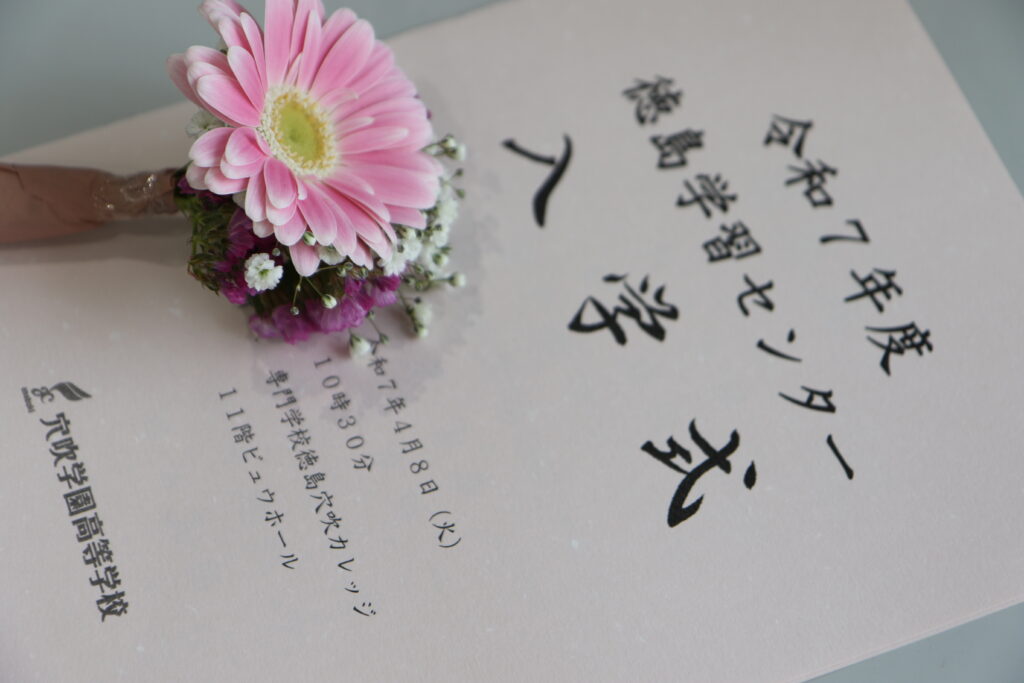 令和7年度
徳島学習センター
入学式
和7年4月8日（火）
10時30分
専門学校徳島穴吹カレッジ
11階ビュウホール
穴吹学園高等学校